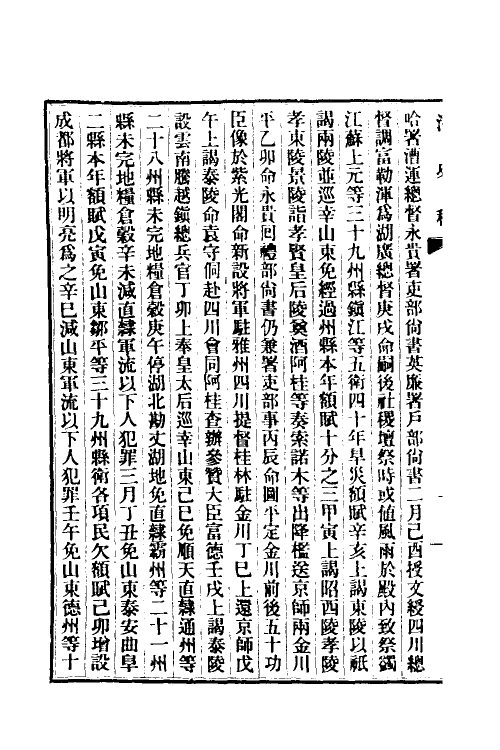 清史稿
哈署漕運總督永貴署吏部尚書英廉署戶部尚書二月己酉授文綬四川總
督調富勒渾爲湖廣總督庚戌命嗣後社稷壇祭時或値風雨於殿內致祭蠲
江蘇上元等三十九州縣鎭江等五衛四十年旱災額賦辛亥上謁東陵以祇
謁兩陵並巡幸山東免經過州縣本年額賦十分之三甲寅上謁昭西陵孝陵
孝東陵景陵詣孝賢皇后陵奠酒阿桂等奏索諾木等出降檻送京師兩金川
平乙卯命永貴回禮部尚書仍兼署吏部事丙辰命圖平定金川前後五十功
臣像於紫光閣命新設將軍駐雅州四川提督桂林駐金川丁巳上還京師戊
午上謁泰陵命袁守侗赴四川會同阿桂查辦參贊大臣富德壬戌上謁泰陵
設雲南騰越鎭總兵官丁卯上奉皇太后巡幸山東己巳免順天直隸通州等
二十八州縣未完地糧倉穀庚午停湖北勘丈湖地免直隸霸州等二十一州
縣未完地糧倉穀辛未減直隸軍流以下人犯罪三月丁丑免山東泰安曲阜
二縣本年額賦戊寅免山東鄒平等三十九州縣衛各項民欠額賦己卯增設
成都將軍以明亮爲之辛巳減山東軍流以下人犯罪壬午免山東德州等十